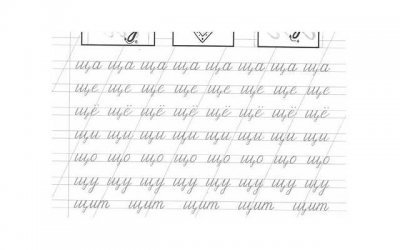 ща ща ща ща ща ща ща ща
ще ще ще ще ще ще ще ще
щё щё щё щё щё щё щё щё
щи щи щи щи щи щи щи щи
що що що що що що що що
щу щу щу щу щу щу щу щу
щит щит щит щит щит